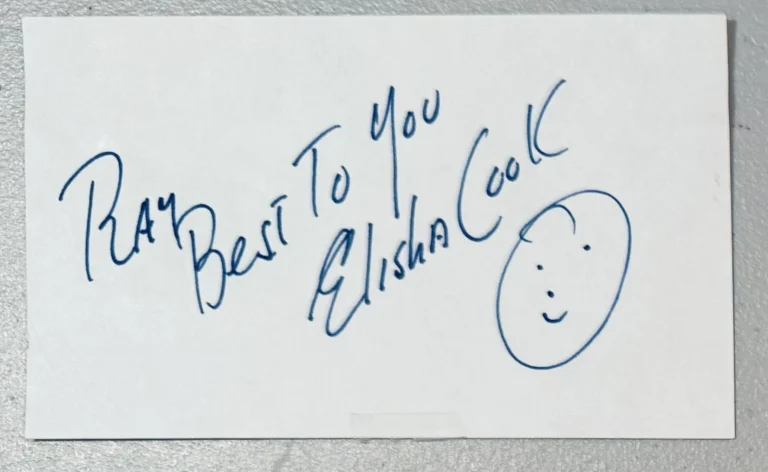 Ray
Best To You
Elisha Cook